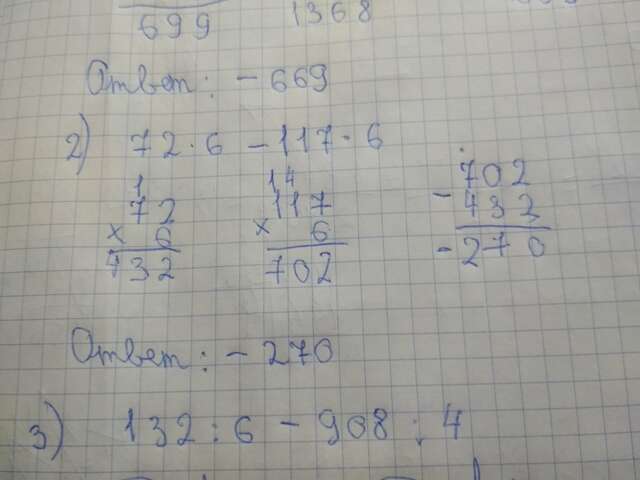 699 1368
Ответ: -669
2) 72·6 - 117·6
1
72
× 6
432
14
117
× 6
702
702
- 432
-270
Ответ: -270
3) 132:6 - 908:4